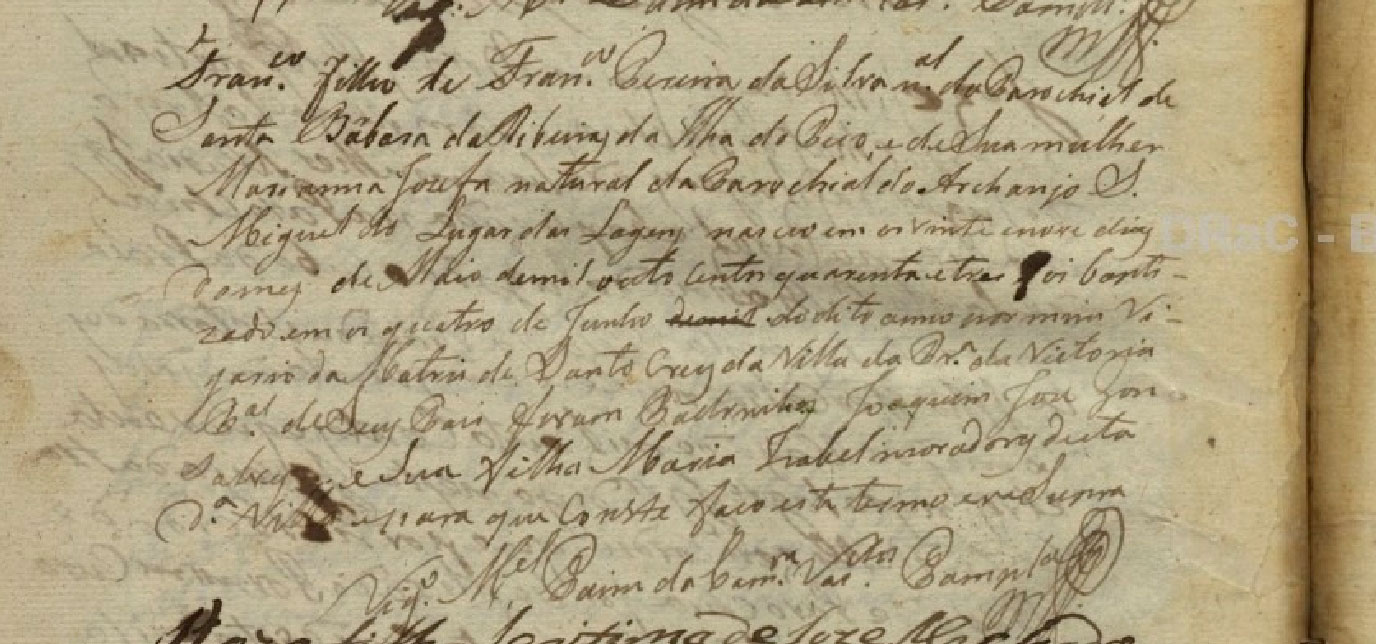 Fran.co filho de Fran.co Pereira da Silva n.al da Parochial de
Santa Bábara da Ribeiras da Ilha do Pico, e de Sua mulher
Marianna Jozefa natural da Parochial do Archanjo S.
Miguel do Lugar das Lagens nasceo em os vinte e nove dias
do mez de Maio de mil oito centos quarenta e tres foi bapti-
zado em os quatro de Junho do dito anno por mim Vi-
gario da Matriz de Santa Cruz da Villa da Pr.a da Victoria
P.al de Seus Pais foram Padrinhos Joaquim Joze Gon
salves e Sua filha Maria Izabel moradores desta
d.a Villa e para que Conste faço este termo era Supra
Vig.o M.el Paim da Cam.ra Vas.los Pamplona
filha legitima de Joze Machado
DRaC - B